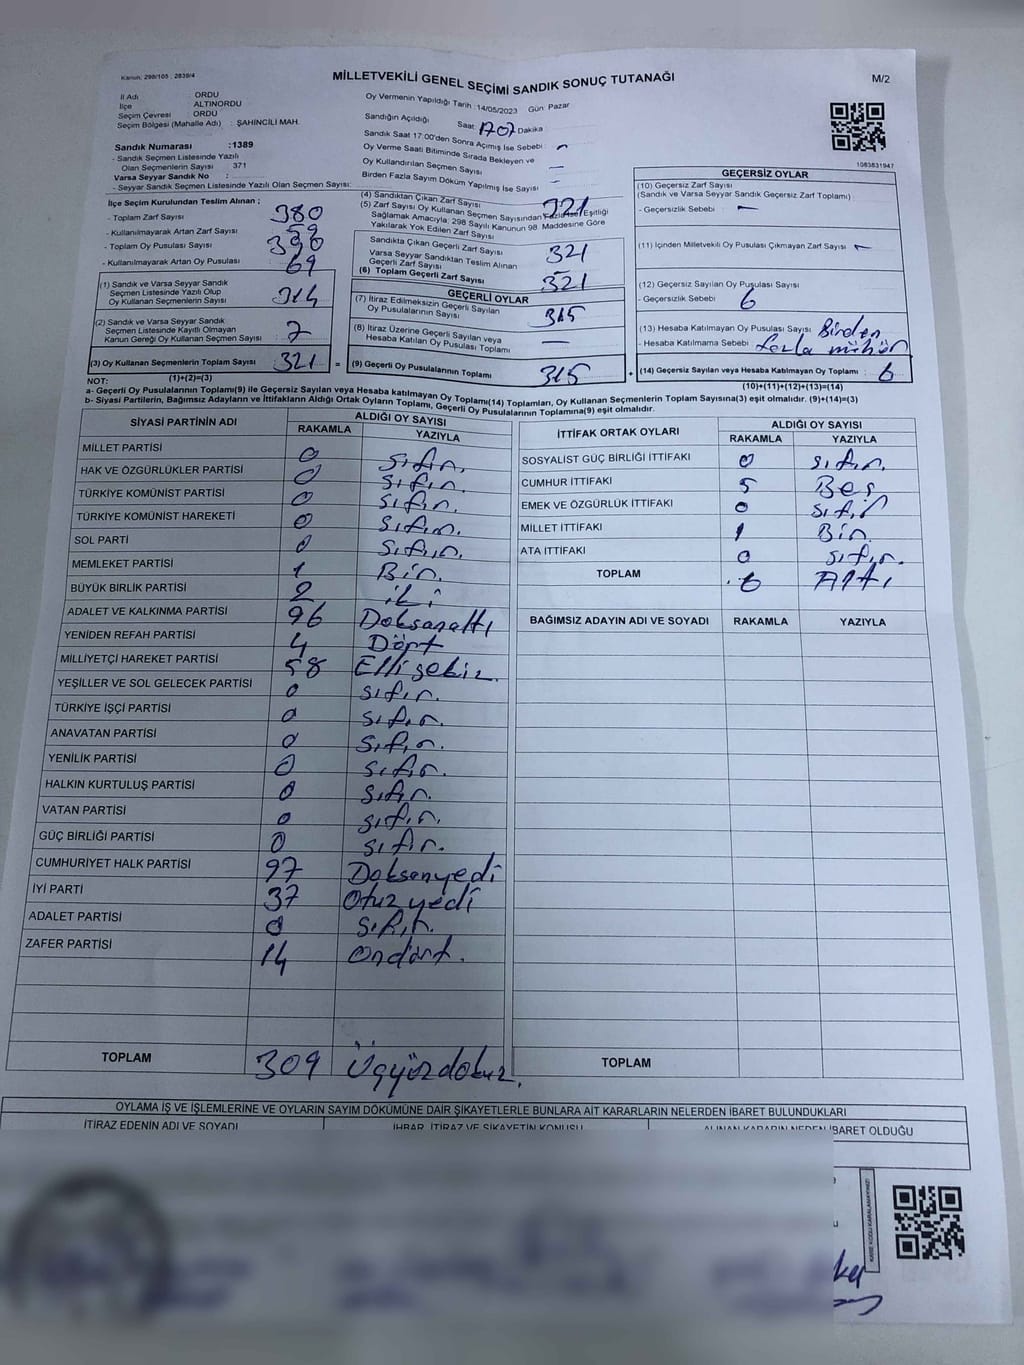 Kanun: 298/105 , 2839/4
MİLLETVEKİLİ GENEL SEÇİMİ SANDIK SONUÇ TUTANAĞI
M/2
İl Adı ORDU
İlçe ALTINORDU
Seçim Çevresi ORDU
Seçim Bölgesi (Mahalle Adı) : ŞAHİNCİLİ MAH.
Sandık Numarası :1389
- Sandık Seçmen Listesinde Yazılı
Olan Seçmenlerin Sayısı : 371
Varsa Seyyar Sandık No :
- Seyyar Sandık Seçmen Listesinde Yazılı Olan Seçmen Sayısı:
Oy Vermenin Yapıldığı Tarih :14/05/2023 Gün: Pazar
Sandığın Açıldığı Saat: 17 07 Dakika
Sandık Saat 17:00'den Sonra Açılmış İse Sebebi :
Oy Verme Saati Bitiminde Sırada Bekleyen ve
Oy Kullandırılan Seçmen Sayısı : —
Birden Fazla Sayım Döküm Yapılmış İse Sayısı : —
1083831947
İlçe Seçim Kurulundan Teslim Alınan ;
- Toplam Zarf Sayısı : 380
- Kullanılmayarak Artan Zarf Sayısı : 59
- Toplam Oy Pusulası Sayısı : 390
- Kullanılmayarak Artan Oy Pusulası : 69
(1) Sandık ve Varsa Seyyar Sandık
Seçmen Listesinde Yazılı Olup
Oy Kullanan Seçmenlerin Sayısı : 314
(2) Sandık ve Varsa Seyyar Sandık
Seçmen Listesinde Kayıtlı Olmayan
Kanun Gereği Oy Kullanan Seçmen Sayısı : 7
(3) Oy Kullanan Seçmenlerin Toplam Sayısı : 321
(1)+(2)=(3)
(4) Sandıktan Çıkan Zarf Sayısı : 321
(5) Zarf Sayısı Oy Kullanan Seçmen Sayısından Fazla ise Eşitliği
Sağlamak Amacıyla; 298 Sayılı Kanunun 98. Maddesine Göre
Yakılarak Yok Edilen Zarf Sayısı
Sandıkta Çıkan Geçerli Zarf Sayısı : 321
Varsa Seyyar Sandıktan Teslim Alınan
Geçerli Zarf Sayısı : —
(6) Toplam Geçerli Zarf Sayısı : 321
GEÇERLİ OYLAR
(7) İtiraz Edilmeksizin Geçerli Sayılan
Oy Pusulalarının Sayısı : 315
(8) İtiraz Üzerine Geçerli Sayılan veya
Hesaba Katılan Oy Pusulası Toplamı : —
= (9) Geçerli Oy Pusulalarının Toplamı : 315
GEÇERSİZ OYLAR
(10) Geçersiz Zarf Sayısı
(Sandık ve Varsa Seyyar Sandık Geçersiz Zarf Toplamı) :
- Geçersizlik Sebebi : —
(11) İçinden Milletvekili Oy Pusulası Çıkmayan Zarf Sayısı : —
(12) Geçersiz Sayılan Oy Pusulası Sayısı :
- Geçersizlik Sebebi : 6
(13) Hesaba Katılmayan Oy Pusulası Sayısı : Birden
- Hesaba Katılmama Sebebi : fazla mühür
+ (14) Geçersiz Sayılan veya Hesaba Katılmayan Oy Toplamı : 6
(10)+(11)+(12)+(13)=(14)
NOT:
a- Geçerli Oy Pusulalarının Toplamı(9) ile Geçersiz Sayılan veya Hesaba katılmayan Oy Toplamı(14) Toplamları, Oy Kullanan Seçmenlerin Toplam Sayısına(3) eşit olmalıdır. (9)+(14)=(3)
b- Siyasi Partilerin, Bağımsız Adayların ve İttifakların Aldığı Ortak Oyların Toplamı, Geçerli Oy Pusulalarının Toplamına(9) eşit olmalıdır.
SİYASİ PARTİNİN ADI ALDIĞI OY SAYISI
RAKAMLA YAZIYLA
MİLLET PARTİSİ 0 sıfır.
HAK VE ÖZGÜRLÜKLER PARTİSİ 0 sıfır.
TÜRKİYE KOMÜNİST PARTİSİ 0 sıfır.
TÜRKİYE KOMÜNİST HAREKETİ 0 sıfır.
SOL PARTİ 0 sıfır.
MEMLEKET PARTİSİ 1 Bir.
BÜYÜK BİRLİK PARTİSİ 2 iki
ADALET VE KALKINMA PARTİSİ 96 Doksanaltı
YENİDEN REFAH PARTİSİ 4 Dört
MİLLİYETÇİ HAREKET PARTİSİ 58 Ellisekiz.
YEŞİLLER VE SOL GELECEK PARTİSİ 0 sıfır.
TÜRKİYE İŞÇİ PARTİSİ 0 sıfır.
ANAVATAN PARTİSİ 0 sıfır.
YENİLİK PARTİSİ 0 sıfır.
HALKIN KURTULUŞ PARTİSİ 0 sıfır.
VATAN PARTİSİ 0 sıfır.
GÜÇ BİRLİĞİ PARTİSİ 0 sıfır.
CUMHURİYET HALK PARTİSİ 97 Doksanyedi
İYİ PARTİ 37 Otuzyedi
ADALET PARTİSİ 0 sıfır.
ZAFER PARTİSİ 14 Ondört.
TOPLAM 309 Üçyüzdokuz.
İTTİFAK ORTAK OYLARI ALDIĞI OY SAYISI
RAKAMLA YAZIYLA
SOSYALİST GÜÇ BİRLİĞİ İTTİFAKI 0 sıfır.
CUMHUR İTTİFAKI 5 Beş
EMEK VE ÖZGÜRLÜK İTTİFAKI 0 sıfır
MİLLET İTTİFAKI 1 Bir.
ATA İTTİFAKI 0 sıfır.
TOPLAM 6 Altı
BAĞIMSIZ ADAYIN ADI VE SOYADI RAKAMLA YAZIYLA
TOPLAM
OYLAMA İŞ VE İŞLEMLERİNE VE OYLARIN SAYIM DÖKÜMÜNE DAİR ŞİKAYETLERLE BUNLARA AİT KARARLARIN NELERDEN İBARET BULUNDUKLARI
İTİRAZ EDENİN ADI VE SOYADI İHBAR, İTİRAZ VE ŞİKAYETİN KONUSU ALINAN KARARIN NEDEN İBARET OLDUĞU
KARE KODU KARALAMAYINIZ!